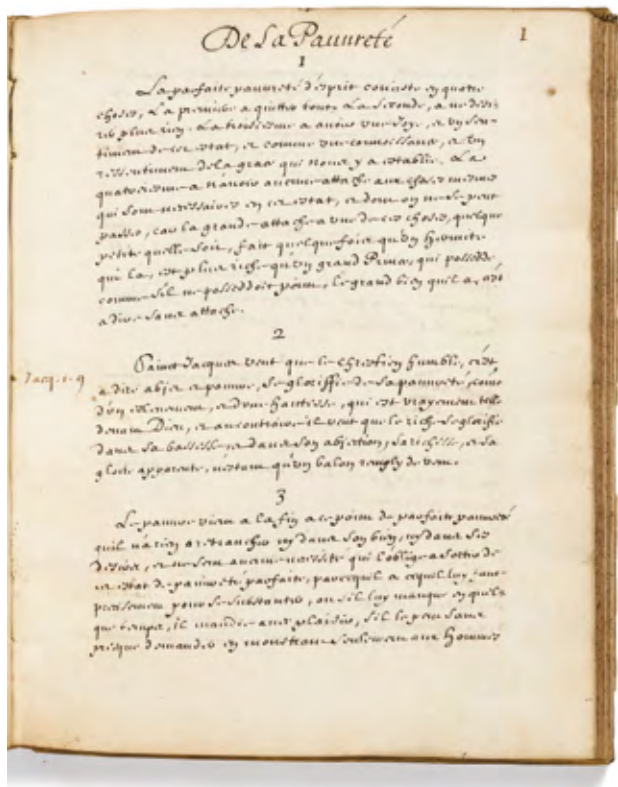 De La Pauureté
1
1
La parfaite pauureté d'esprit consiste en quatre
choses, La premiere a quitter tout, La seconde, a ne desi-
rer plus rien. La troisiesme a auoir vne Joye, et vn sen-
timent de cet estat, et comme vne connoissance, et vn
ressentiment de la grace qui nous y a establis. La
quatriesme a n'auoir aucune attache aux choses mesmes
qui sont necessaires en cet estat, et dont on ne se peut
passer, car la grande attache a vne de ces choses, quelque
petite quelle soit, fait quelque fois qu'vn hermite
qui la, est plus riche qu'vn grand Prince, qui possede
comme s'il ne posseddoit point, le grand bien quil a, cest
a dire sans attache.
2
Jacq. 1. 9
Sainct Jacques veut que le Chrestien humble, c'est
a dire abjet et pauure, se gloriffie de sa pauureté, comme
d'vn esleuement, et d'vne hautesse, qui est vrayement telle
deuant Dieu, et au contraire il veut que le riche se glorifie
dans sa bassesse, et dans son abjection, sa richesse, et sa
gloire apparente, n'estant qu'vn balon remply de vent.
3
Le pauure vient a la fin a ce point de parfaite pauureté
quil n'a rien a retrancher ny dans son bien, ny dans ses
desirs, et ne sent aucune necessité qui l'oblige a sortir de
cet estat de pauureté parfaite, parcequil a cequil luy faut
precisement pour se substanter, ou s'il luy manque en quel-
que temps, il mandie auec plaisir, s'il le peut sans
presque demander en monstrant seulement aux hommes